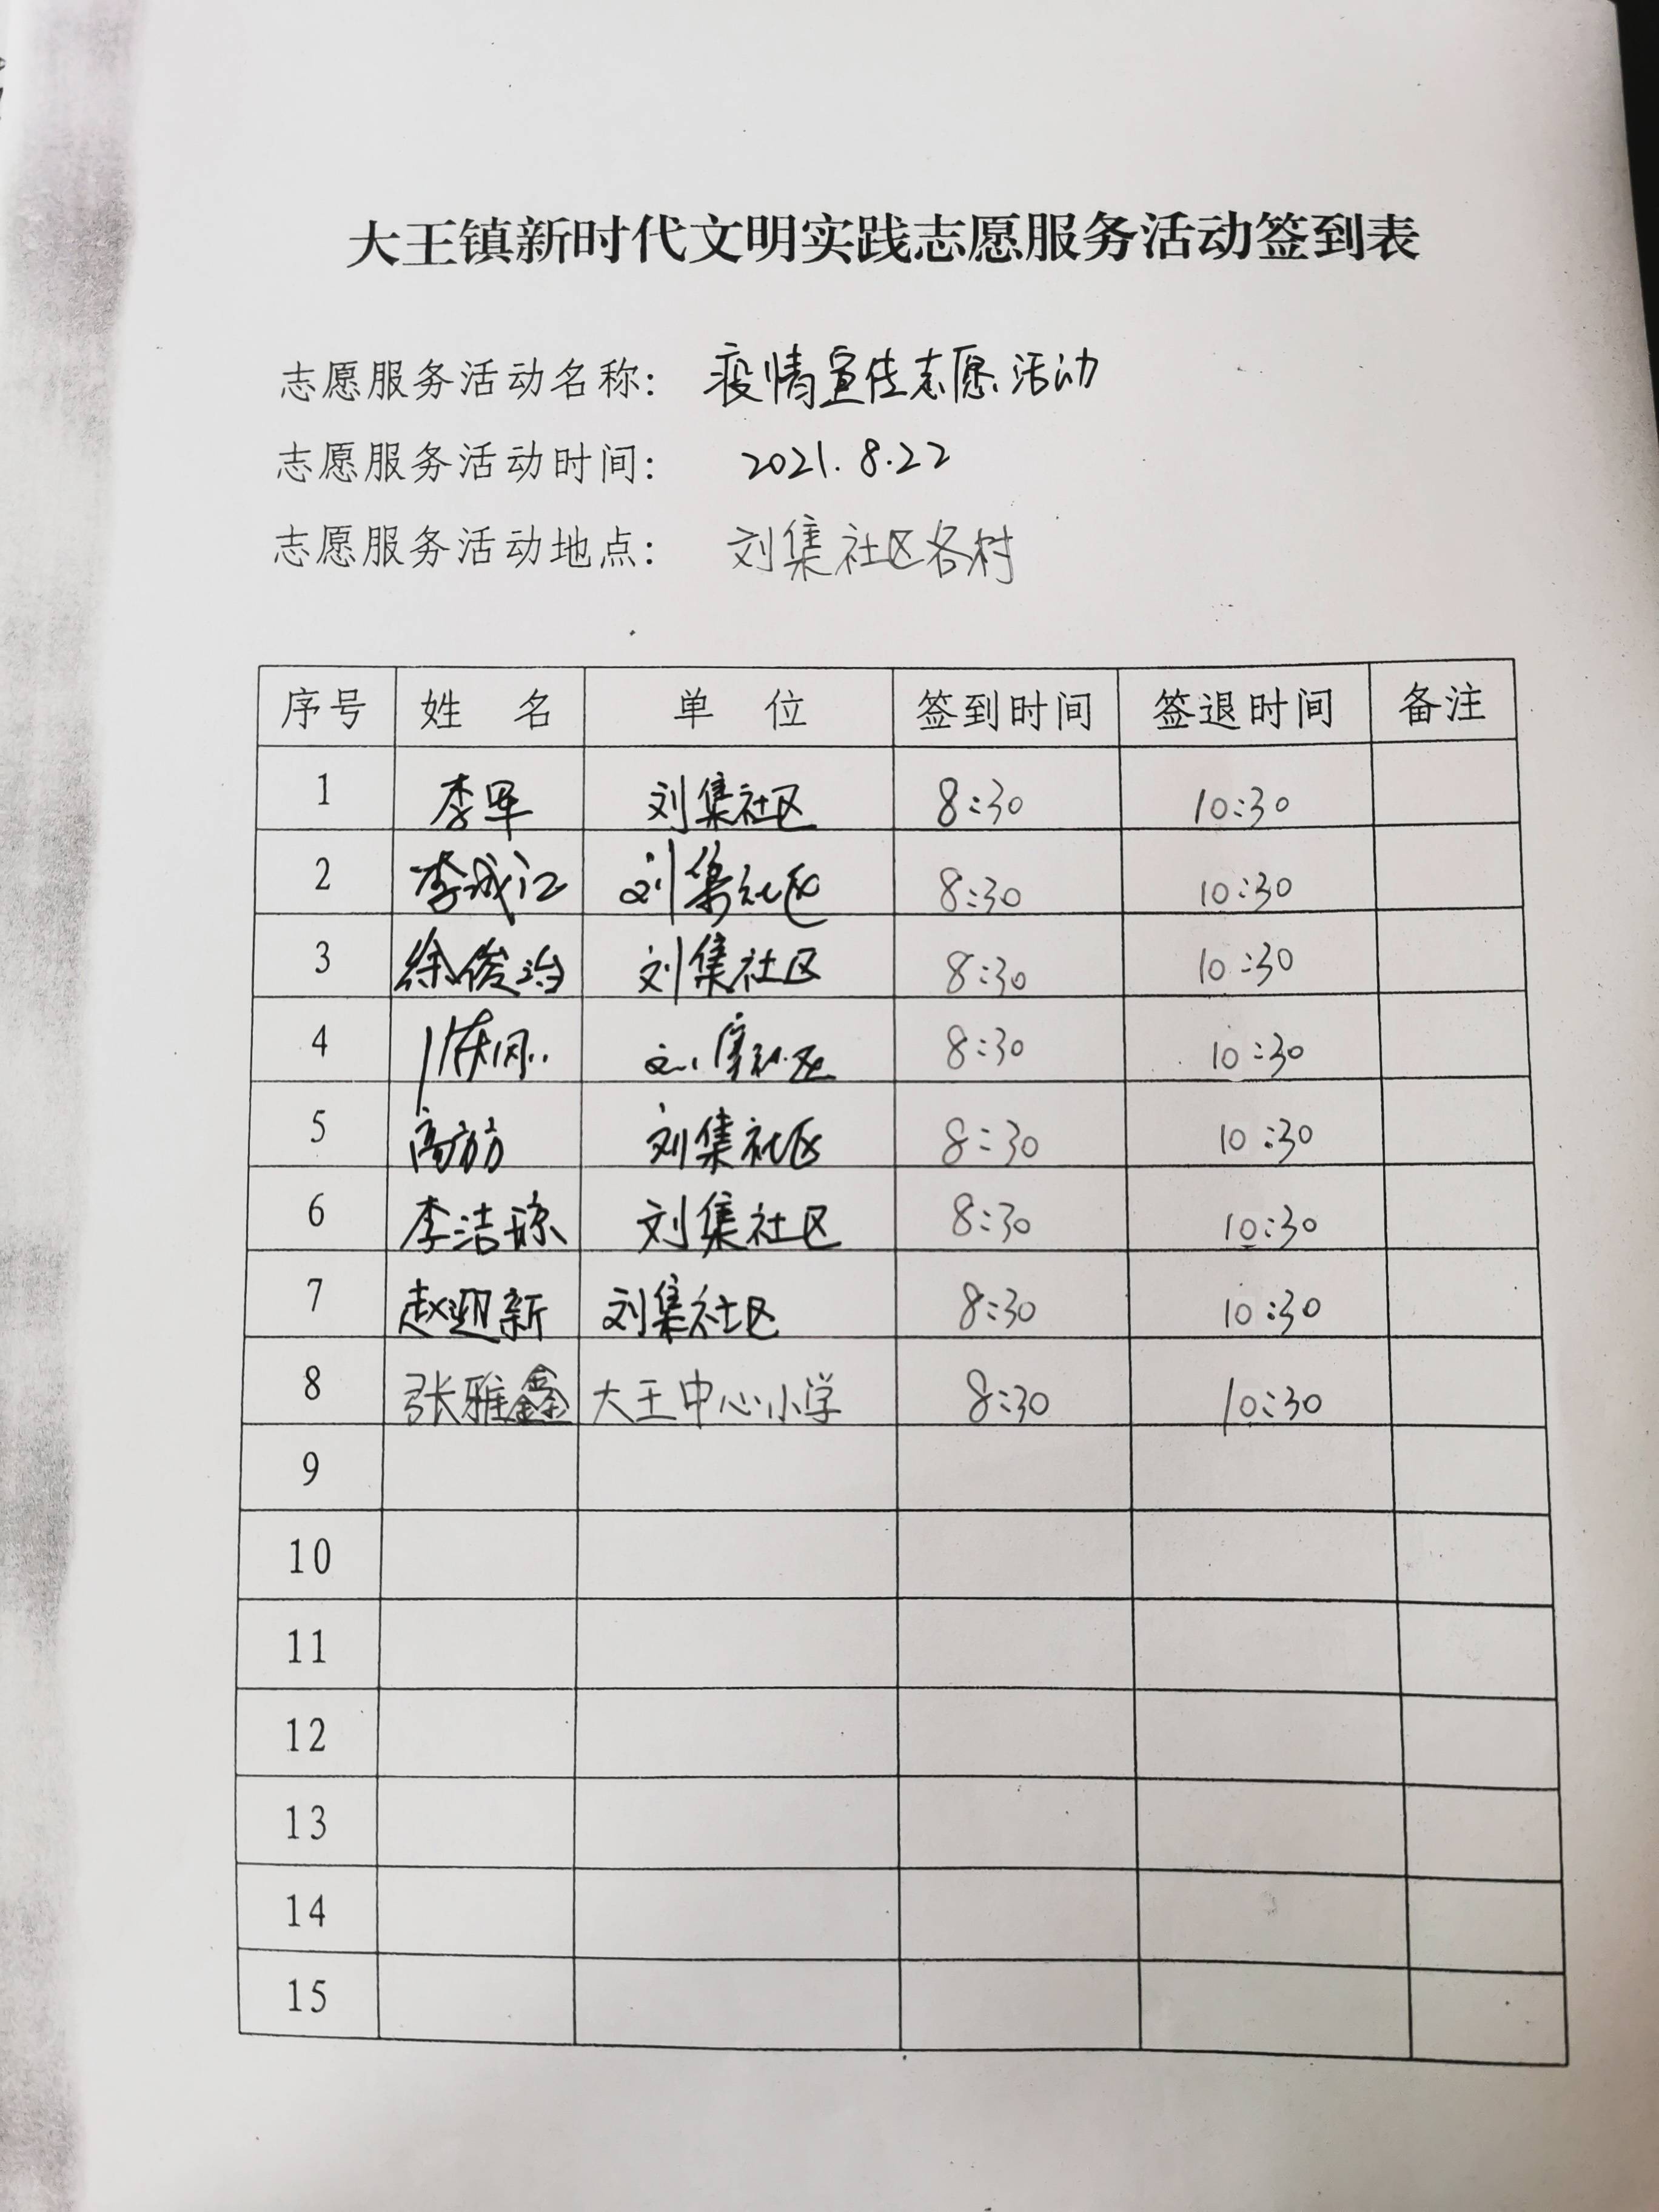 大王镇新时代文明实践志愿服务活动签到表
志愿服务活动名称： 疫情宣传志愿活动
志愿服务活动时间： 2021.8.22
志愿服务活动地点： 刘集社区各村
序号 姓 名 单 位 签到时间 签退时间 备注
1 李军 刘集社区 8:30 10:30
2 李成江 刘集社区 8:30 10:30
3 徐俊治 刘集社区 8:30 10:30
4 刘集社区 8:30 10:30
5 高 刘集社区 8:30 10:30
6 李洁琼 刘集社区 8:30 10:30
7 赵迎新 刘集社区 8:30 10:30
8 张雅鑫 大王中心小学 8:30 10:30
9
10
11
12
13
14
15